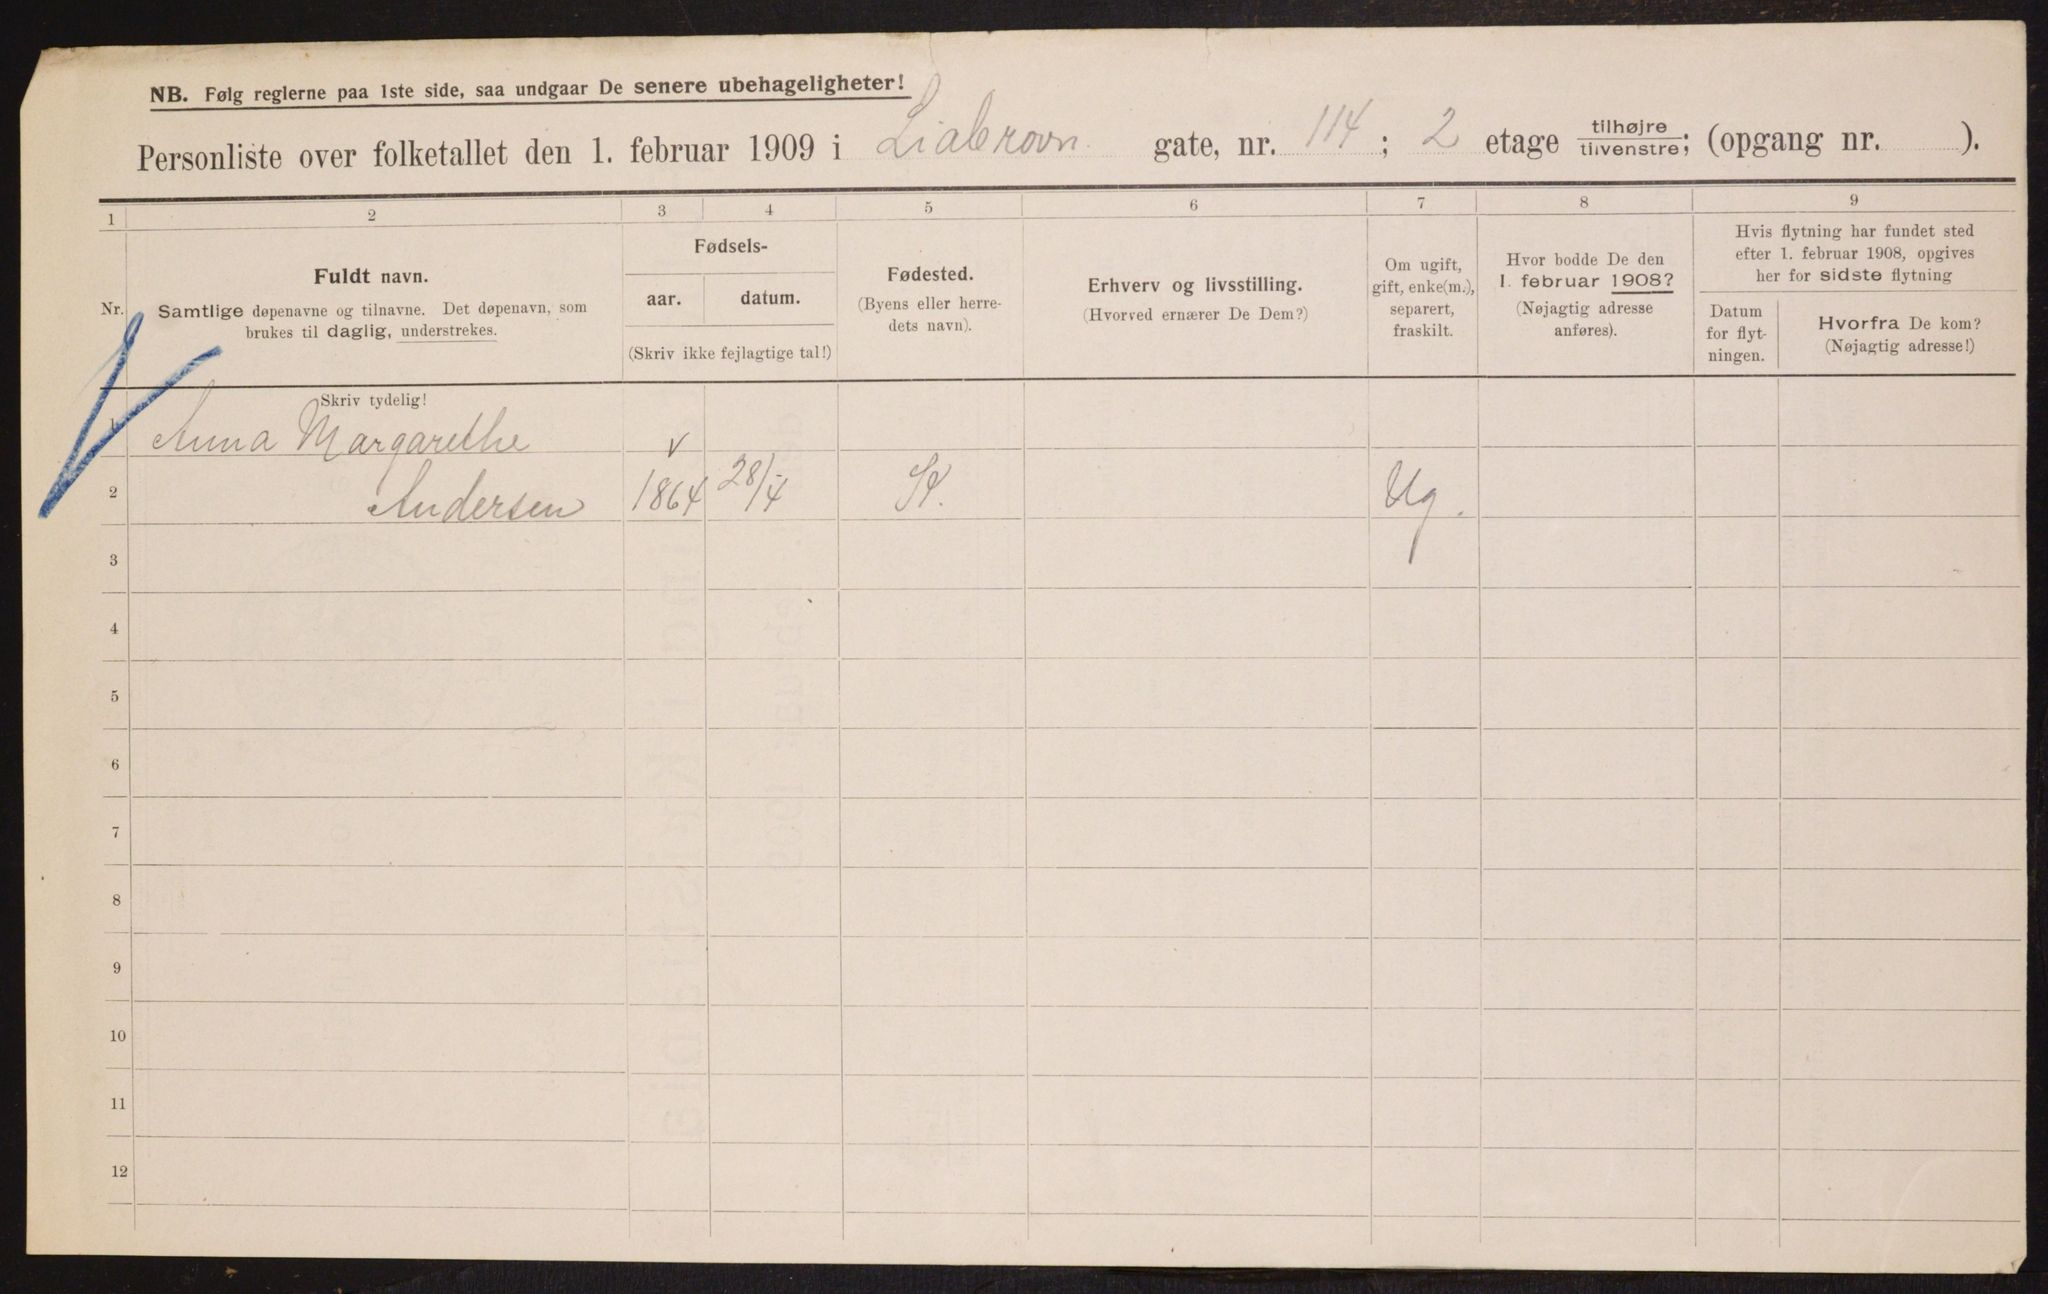 NB. Følg reglerne paa 1ste side, saa undgaar De senere ubehageligheter!
Personliste over folketallet den 1. februar 1909 i gate, nr. 114; 2 etage tilhøjre tilvenstre; (opgang nr. ).
1 2 3 4 5 6 7 8 9
Nr.
Fuldt navn.
Samtlige døpenavne og tilnavne. Det døpenavn, som
brukes til daglig, understrekes.
Fødsels-
aar. datum.
(Skriv ikke fejlagtige tal!)
Fødested.
(Byens eller herre-
dets navn).
Erhverv og livsstilling.
(Hvorved ernærer De Dem?)
Om ugift,
gift, enke(m.),
separert,
fraskilt.
Hvor bodde De den
1. februar 1908?
(Nøjagtig adresse
anføres).
Hvis flytning har fundet sted
efter 1. februar 1908, opgives
her for sidste flytning
Datum
for flyt-
ningen.
Hvorfra De kom?
(Nøjagtig adresse!)
Skriv tydelig!
1 Anna Margarethe
2 Andersen 1864 28/4 St. Ug.
3
4
5
6
7
8
9
10
11
12